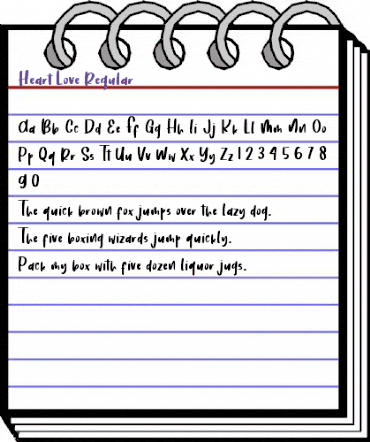 Heart Love Regular
Aa Bb Cc Dd Ee Ff Gg Hh Ii Jj Kk Ll Mm Nn Oo
Pp Qq Rr Ss Tt Uu Vv Ww Xx Yy Zz 1 2 3 4 5 6 7 8
9 0
The quick brown fox jumps over the lazy dog.
The five boxing wizards jump quickly.
Pack my box with five dozen liquor jugs.